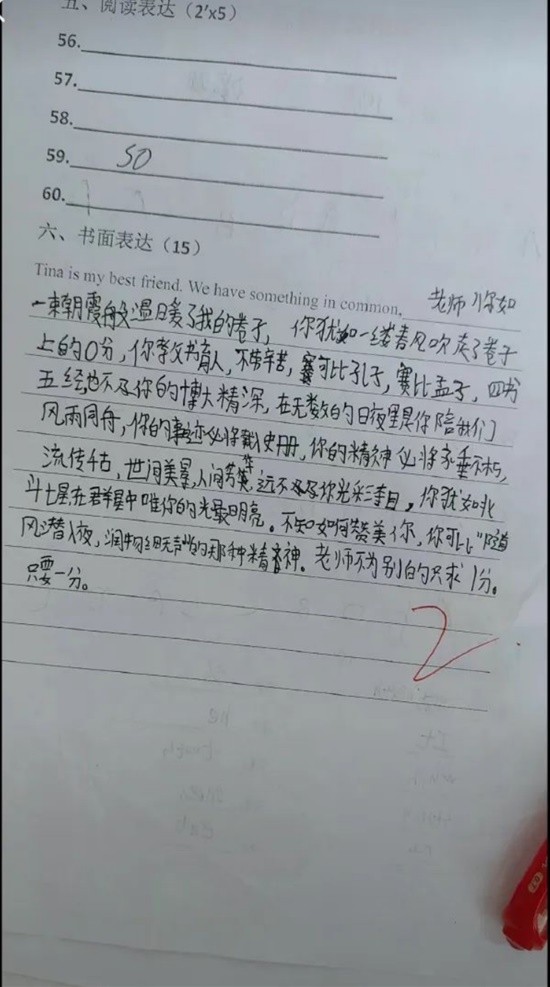 五、阅读表达（2'x5）
56.
57.
58.
59. SO
60.
六、书面表达（15）
Tina is my best friend. We have something in common, 老师，你如
一束朝霞般温日暖了我的卷子，你犹如一缕春风吹走了卷子
上的0分，你教书育人，不劳辛苦，赛可比孔子，赛比孟子，四书
五经也不及你的博大精深，在无数的日夜里是你陪我们
风雨同舟，你的事迹必将载史册，你的精神必将永垂不朽，
流传千古，世间美景，人间芳华，远不及你光彩夺目，你犹如北
斗七星在群星中唯你的光最明亮。不知如何赞美你，你可比“随
风潜入夜，润物细无声”的那种精神。老师不为别的只求1分。
只要一分。
2